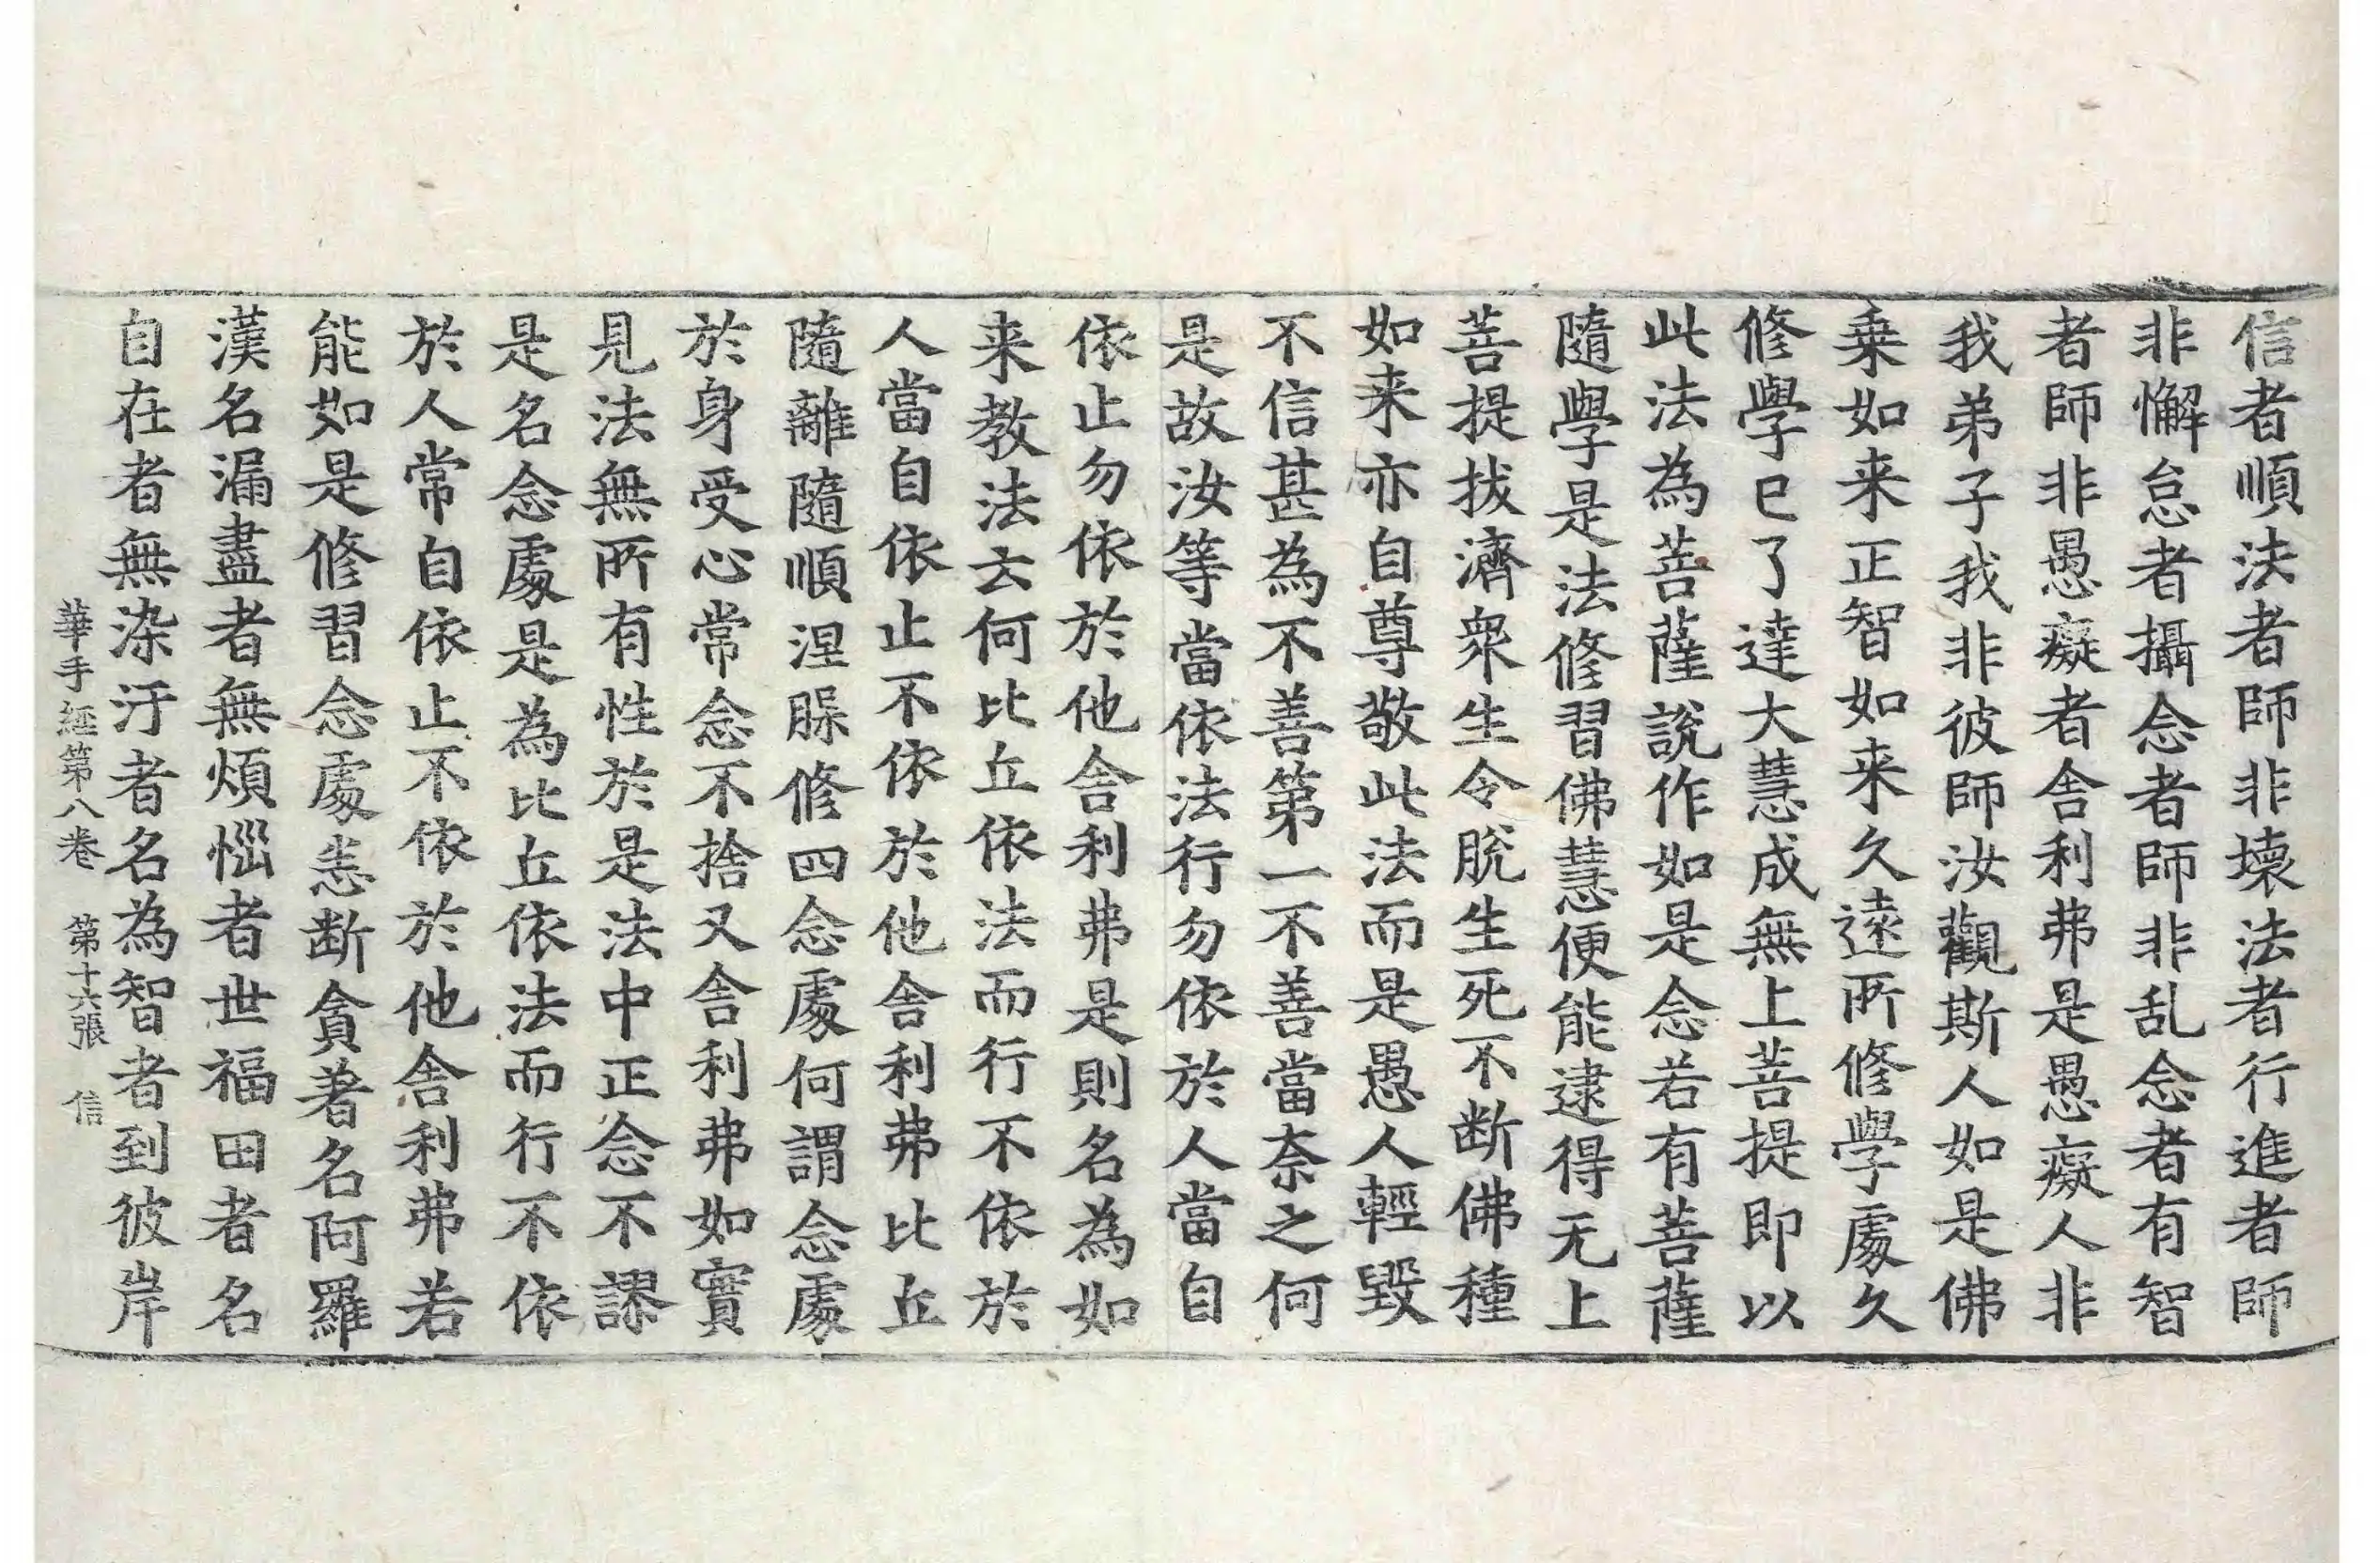 信者順法者師非壞法者行進者師
非懈怠者攝念者師非乱念者有智
者師非愚癡者舍利弗是愚癡人非
我弟子我非彼師汝觀斯人如是佛
乗如来正智如来久遠所修學處久
修學已了達大慧成無上菩提即以
此法為菩薩說作如是念若有菩薩
隨學是法修習佛慧便能逮得无上
菩提拔濟衆生令脫生死不断佛種
如来亦自尊敬此法而是愚人輕毀
不信甚為不善第一不善當奈之何
是故汝等當依法行勿依於人當自
依止勿依於他舍利弗是則名為如
来教法云何比丘依法而行不依於
人當自依止不依於他舍利弗比丘
隨離隨順涅槃修四念處何謂念處
於身受心常念不捨又舍利弗如實
見法無所有性於是法中正念不謬
是名念處是為比丘依法而行不依
於人常自依止不依於他舍利弗若
能如是修習念處悉断貪著名阿羅
漢名漏盡者無煩惱者世福田者名
自在者無染汙者名為智者到彼岸
華手經第八卷 第十六張 信